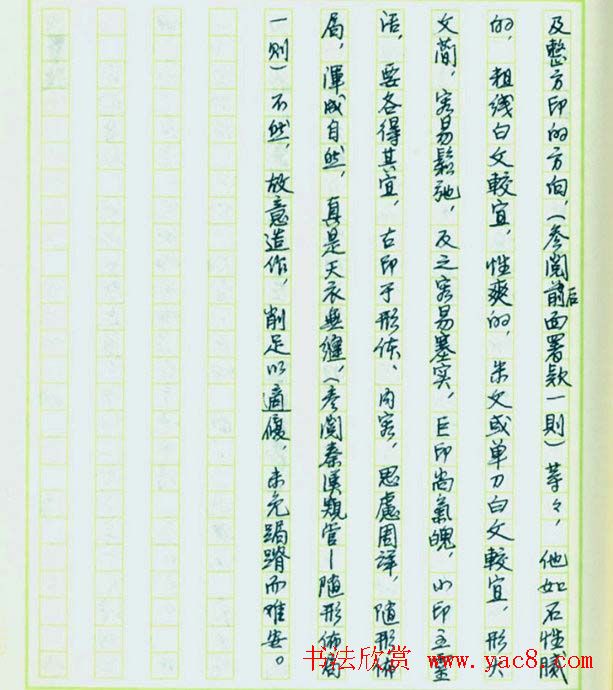 及整方印的方向，（参阅前后面署款一则）等々，他如石性腻
的，粗线白文较宜，性爽的，朱文或单刀白文较宜，形大
文简，容易鬆弛，反之容易塞实，巨印尚氣魄，小印主靈
活，要各得其宜，古印于形体、内容，思慮周详，随形佈
局，渾成自然，真是天衣無缝，（参阅秦漢窺管—随形佈局
一则）不然，故意造作，削足以適履，未免跼蹐而难安。
书法欣赏 www.yac8.com